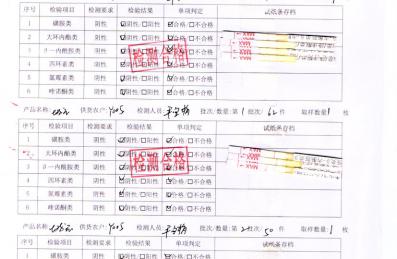 序号 检验项目 检测要求 检验结果 单项判定 试纸条存档
1 磺胺类 阴性 ☑阴性 ☐阳性 ☑合格/☐不合格
2 大环内酯类 阴性 ☑阴性 ☐阳性 ☑合格/☐不合格
3 β一内酰胺类 阴性 ☑阴性 ☐阳性 ☑合格/☐不合格
4 四环素类 阴性 ☑阴性 ☐阳性 ☑合格/☐不合格
5 氯霉素类 阴性 ☑阴性 ☐阳性 ☑合格/☐不合格
6 喹诺酮类 阴性 ☑阴性 ☐阳性 ☑合格/☐不合格
检测合格
MAX
产品名称: 供货农户: Y005 检测人员: 批次/数量: 第1批次/62件 取样数量1枚
序号 检验项目 检测要求 检验结果 单项判定 试纸条存档
1 磺胺类 阴性 ☑阴性/☐阳性 ☑合格/☐不合格
2 大环内酯类 阴性 ☑阴性/☐阳性 ☑合格/☐不合格
3 β一内酰胺类 阴性 ☑阴性/☐阳性 ☑合格/☐不合格
4 四环素类 阴性 ☑阴性/☐阳性 ☑合格/☐不合格
5 氯霉素类 阴性 ☑阴性/☐阳性 ☑合格/☐不合格
6 喹诺酮类 阴性 ☑阴性/☐阳性 ☑合格/☐不合格
检测合格
MAX
产品名称: 供货农户: Y005 检测人员: 批次/数量: 第2批次/50件 取样数量:1枚
序号 检验项目 检测要求 检验结果 单项判定 试纸条存档
1 磺胺类 阴性 ☑阴性/☐阳性 ☑合格/☐不合格